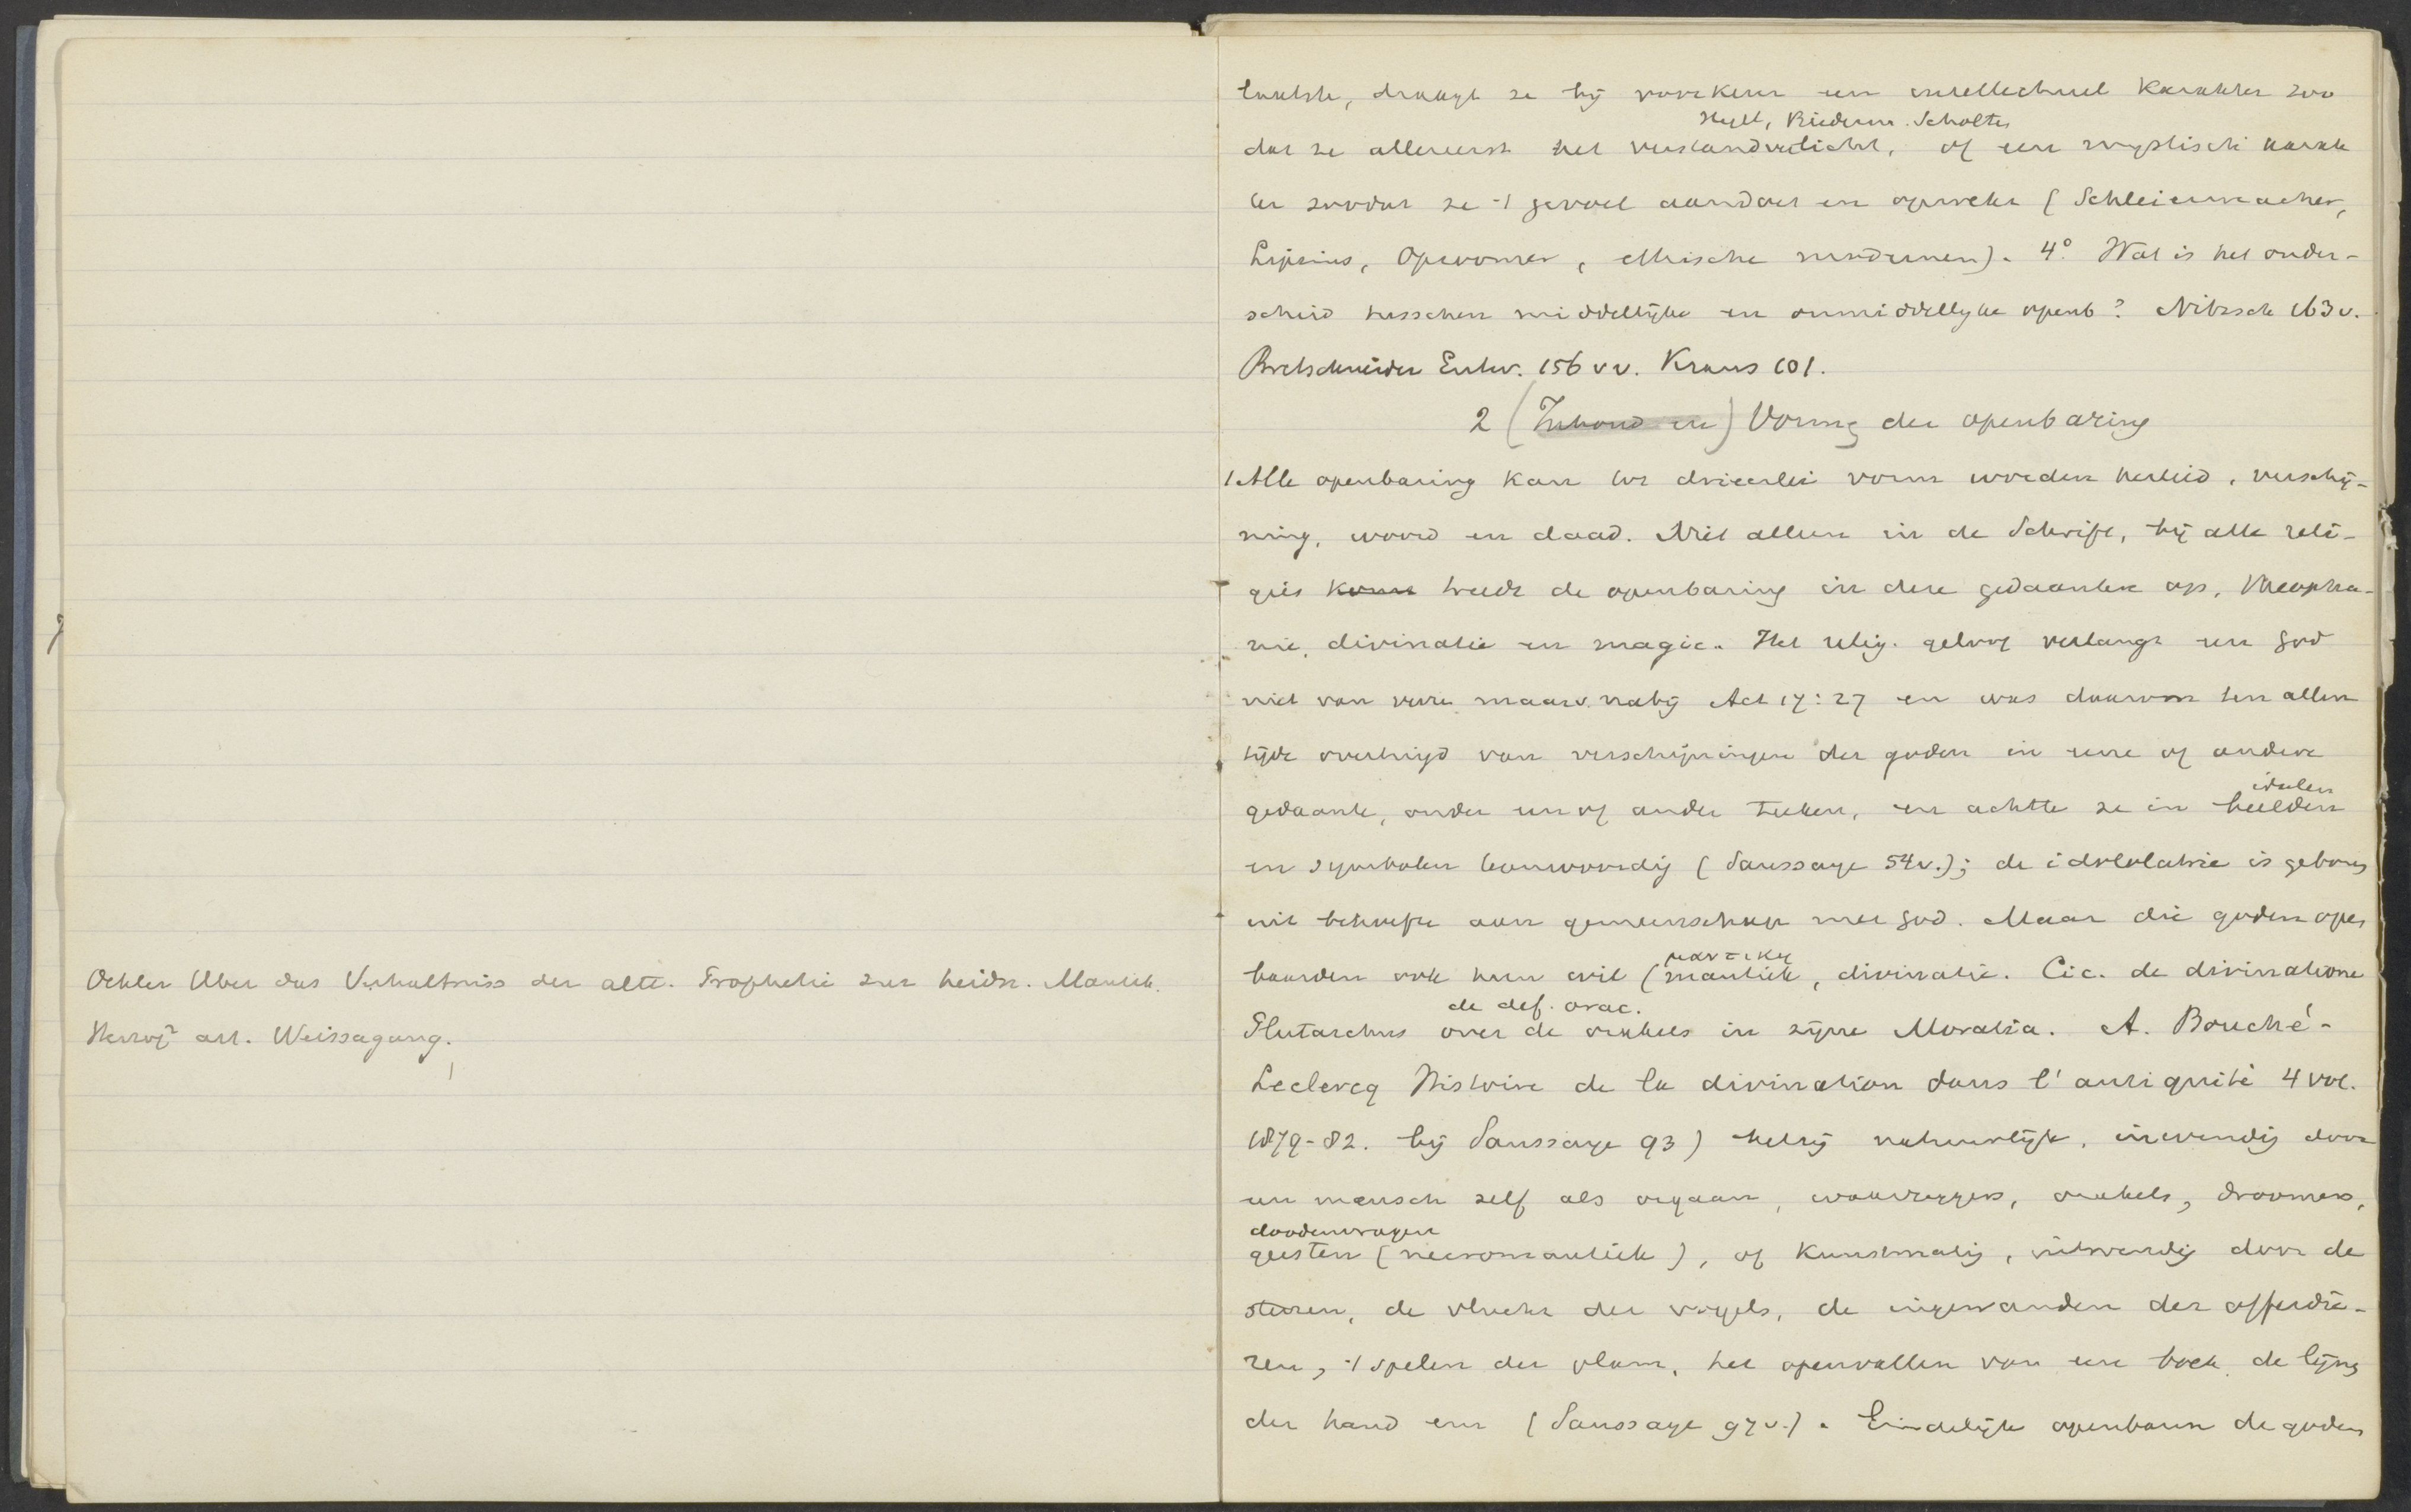 Oehler Uber das Verhaltniss der altt. Prophetie zur heidn. Mantik.
Herzog² art. Weissagung.
laatste, draagt ze bij voorkeur een intellectueel karakter zoo
Hegel, Biederm. Scholten
dat ze allereerst het verstand verlicht, of een mystisch karak
ter zoodat ze 't gevoel aandoet en opwekt (Schleiermacher,
Lipsius, Opzoomer, ethische modernen). 4° Wat is het onder-
scheid tusschen middellijke en onmiddellijke openb? Nitzsch 163 v.
Bretschneider Entw. 156 vv. Kraus 101.
2 (Inhoud en) Vorm der openbaring
1 Alle openbaring kan tot drieerlei vorm worden herleid, verschij-
ning, woord en daad. Niet alleen in de Schrift, bij alle reli-
gies komt treedt de openbaring in deze gedaanten op, theopha-
nie, divinatie en magie. Het relig. geloof verlangt een God
niet van verre maar v. nabij Act 17:27 en was daarom ten allen
tijde overtuigd van verschijningen der goden in eene of andere
idolen
gedaante, onder een of ander teeken, en achtte ze in beelden
en symbolen tegenwoordig (Saussaye 54v.); de idololatrie is geboren
uit behoefte aan gemeenschap met God. Maar die goden open
μαντικη
baarden ook hun wil (mantiek, divinatie. Cic. de divinatione
de def. orac.
Plutarchus over de orakels in zijne Moralia. A. Bouché-
Leclercq Histoire de la divination dans l'antiquité 4 vol.
1879-82. bij Saussaye 93) hetzij natuurlijk, inwendig door
een mensch zelf als orgaan, waarzeggers, orakels, droomen,
doodenvragen
geesten (necromantiek), of kunstmatig, uitwendig door de
sterren, de vlucht der vogels, de ingewanden der offerdie-
ren, 't spelen der vlam, het openvallen van een boek, de lijnen
der hand enz (Saussaye 97v.). Eindelijk openbaren de goden